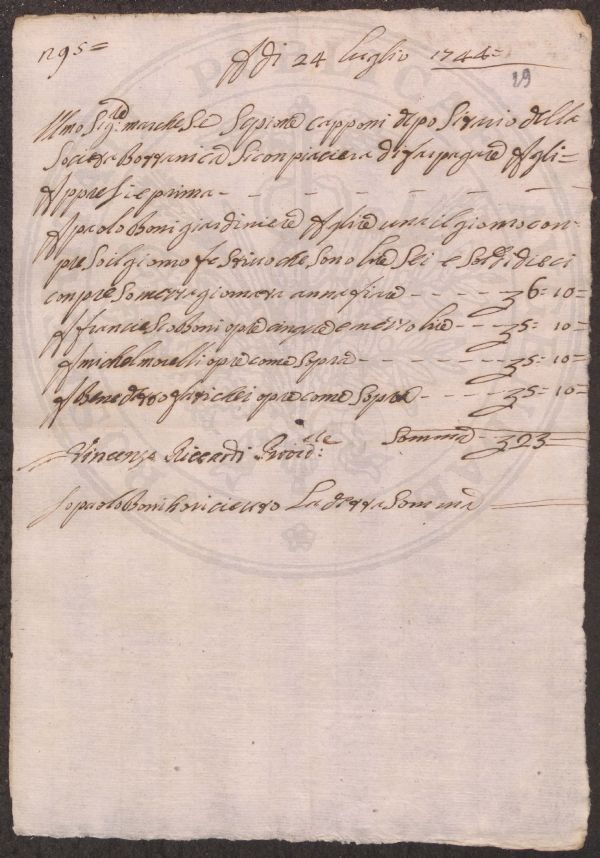 n 95=
A di 24 luglio 1744=
29
Illmo Sigre marchese Sepione Capponi depositario della
Società Bottanica Si conpiacera di far pagare Agli=
Appresi e prima
A paolo Boni giardiniere A lire una il giorno con
preso il giorno festivo che sono lire Sei e Soldi dieci
conpreso mezza giornata annafiare 36=10=
A franciescho Boni opre cinque e mezzo lire 35=10=
A michel morelli opre come Sopra 35=10=
A Benedetto opre come Sopra 35=10=
Vincenzo Riccardi Providle
Somma 323
Io paolo Boni ho ricieuto La detta Somma